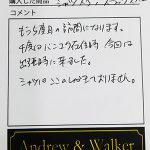 購入した商品
コメント
もう5度目の訪問になります。
4度はバンコク在住時、今回は
出張時に来ました。
シャツはここのしか着ておりません。
Andrew & Walker